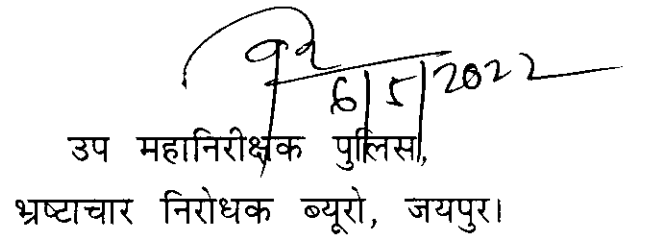 6/5/2022
उप महानिरीक्षक पुलिस,
भ्रष्टाचार निरोधक ब्यूरो, जयपुर।